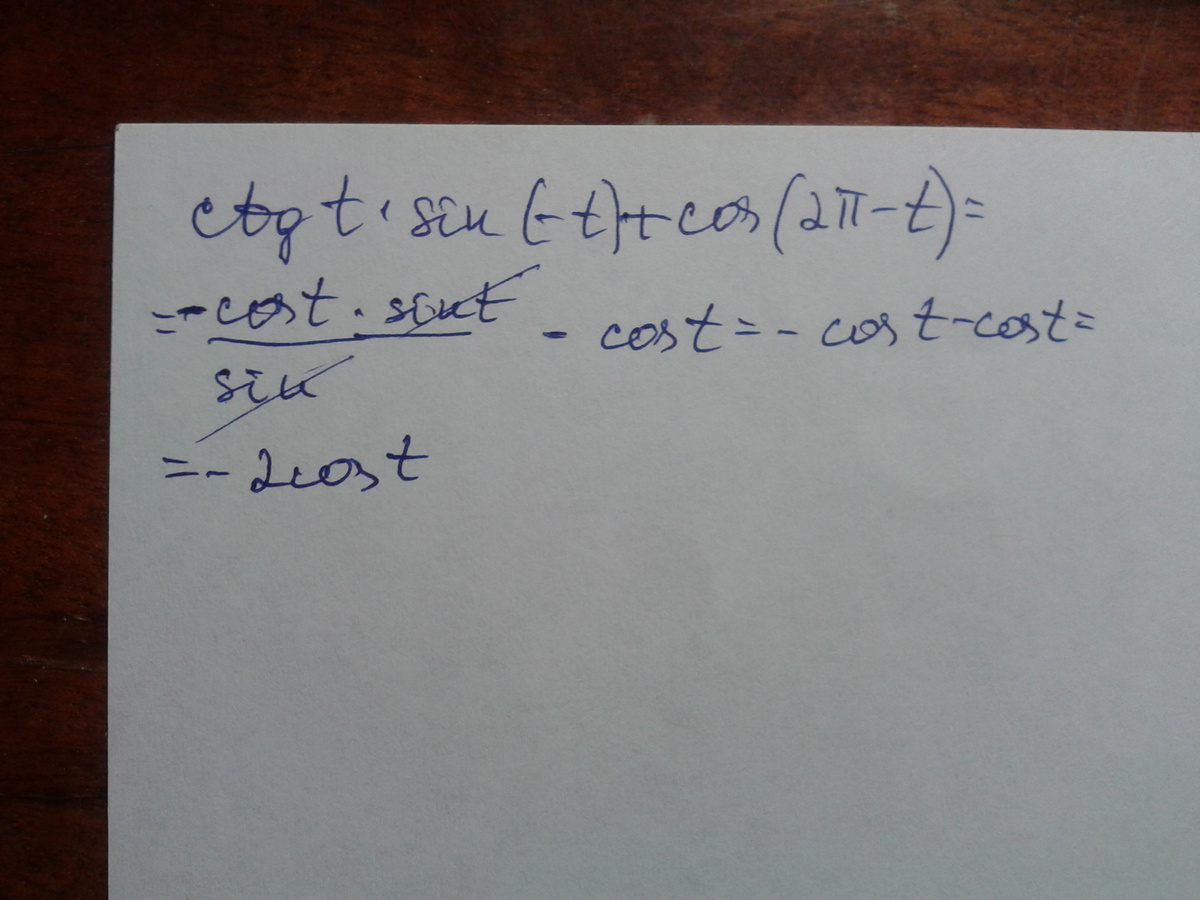 ctg t · sin (-t) + cos (2π - t) =
= - cos t · sin t / sin - cos t = - cos t - cos t =
= - 2 cos t